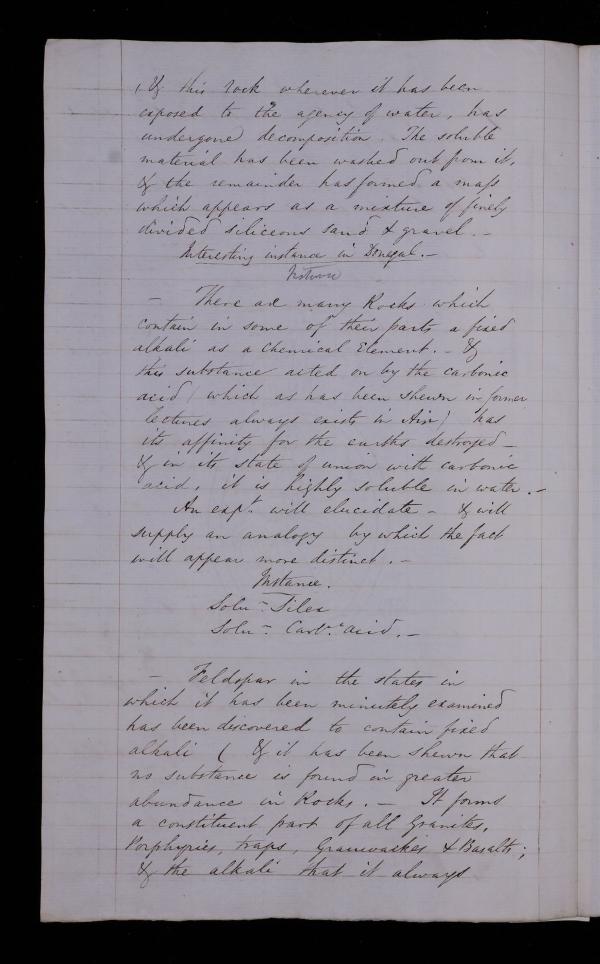 (, & this rock wherever it has been
exposed to the agency of water, has
undergone decomposition. The soluble
material has been washed out from it,
& the remainder has formed a mass
which appears as a mixture of finely
divided siliceous sand & gravel. —
Interesting instance in Donegal. —
— There are many Rocks which
contain in some of their parts a fixed
alkali as a chemical Element. — &
this substance acted on by the carbonic
acid (which as has been shewn in former
lectures always exists in Air) has
its affinity for the earths destroyed —
& in its state of union with carbonic
acid, it is highly soluble in water. —
An expt. will elucidate — & will
supply an analogy by which the fact
will appear more distinct. —
Instance.
Solun. Silex
Solun. Carbc. acid. —
— Feldspar in the states in
which it has been minutely examined
has been discovered to contain fixed
alkali ( & it has been shewn that
no substance is found in greater
abundance in Rocks. — It forms
a constituent part of all Granites,
Porphyries, traps, Grauwackes & Basalts;
& the alkali that it always